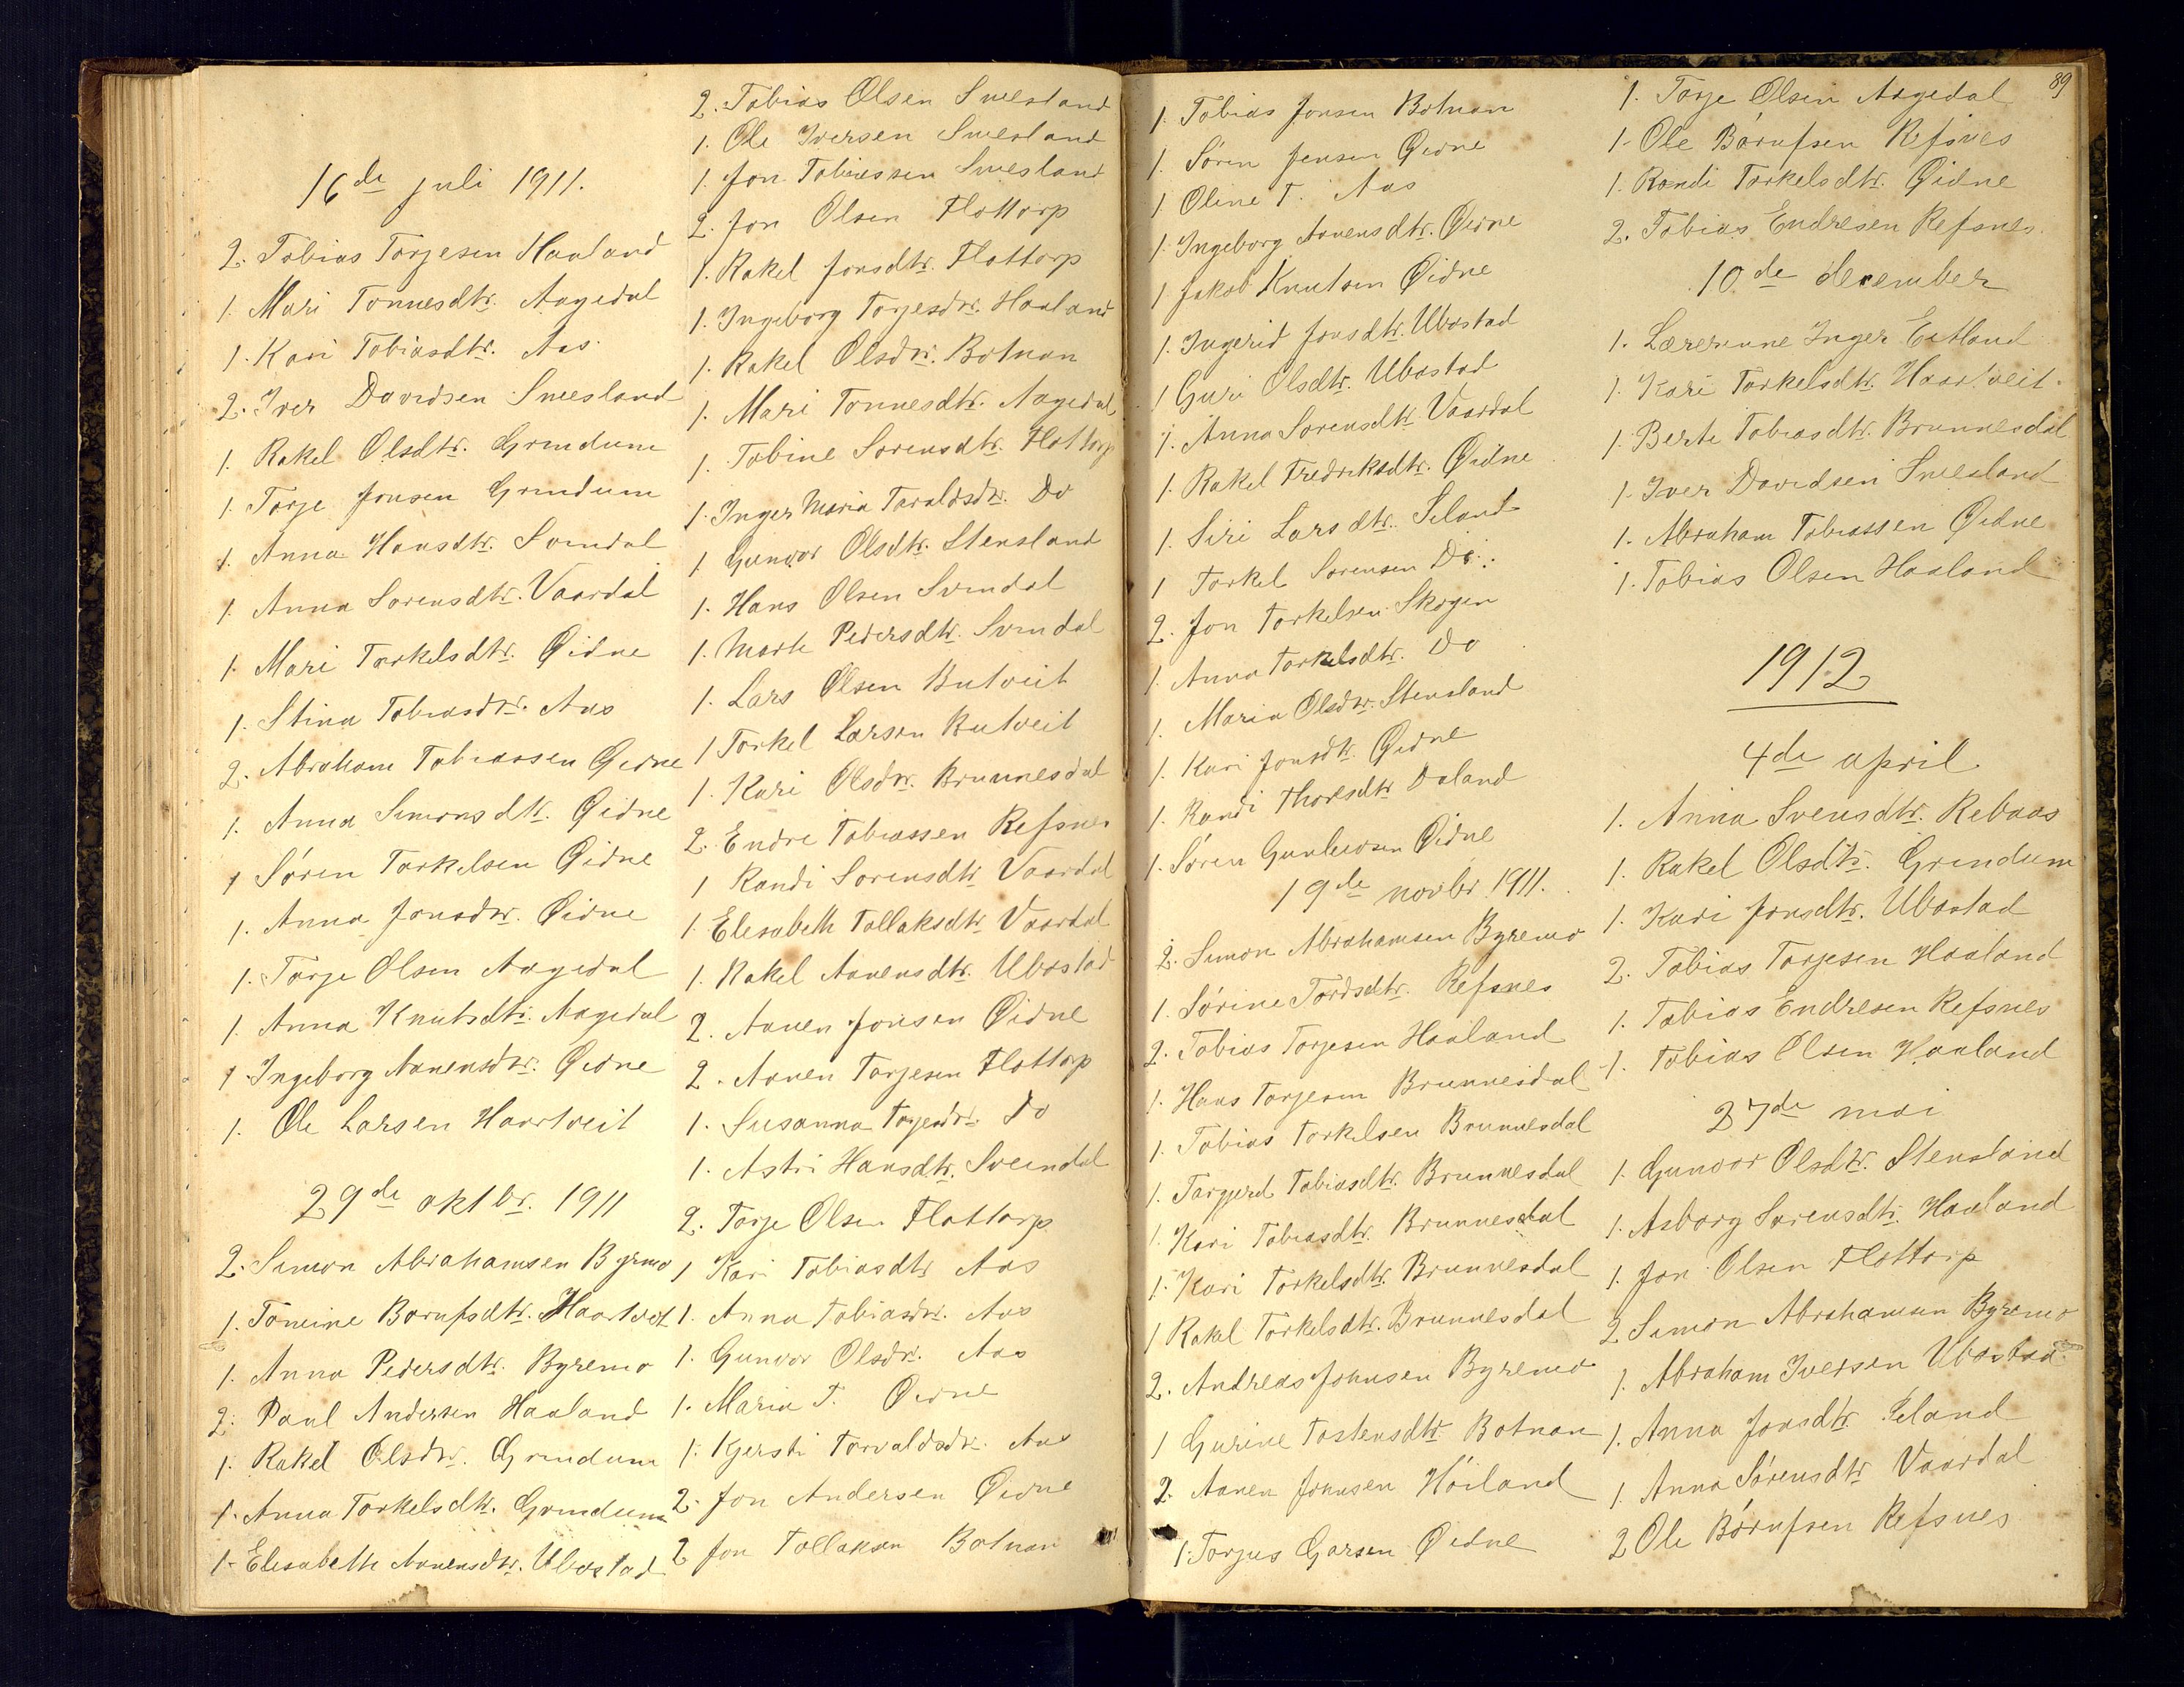 16de juli 1911.
2. Tobias Torjesen Haaland
1. Mari Tonnesdtr. Aagedal
1. Kari Tobiasdtr. Aas
2. Iver Davidsen Smesland
1. Rakel Olsdtr. Grindum
1. Torje Jonsen Grindum
1. Anna Hansdtr. Svindal
1. Anna Sorensdtr. Vaardal
1. Mari Torkelsdtr. Øidne
1. Stina Tobiasdtr. Aas
2. Abraham Tobiassen Øidne
1. Anna Simonsdtr. Øidne
1 Søren Torkelsen Øidne
1. Anna Jonsdtr. Øidne
1. Torje Olsen Aagedal
1. Anna Knutsdtr. Aagedal
1 Ingeborg Aanensdtr. Øidne
1. Ole Larsen Haartveit
29de oktbr. 1911
2. Simon Abrahamsen Byremo
1. Tomine Borufsdtr. Haartveit
1. Anna Pedersdtr. Byremo
2. Paul Andersen Haaland
1. Rakel Olsdtr. Grindum
1. Anna Torkelsdtr. Grindum
1. Elisabeth Aanensdtr. Ubostad
2. Tobias Olsen Smesland
1. Ole Iversen Smesland
1. Jon Tobiassen Smesland
2. Jon Olsen Flottorp
1. Rakel Jonsdtr. Flottorp
1. Ingeborg Torjesdtr. Haaland
1. Rakel Olsdtr. Botnan
1. Mari Tonnesdtr. Aagedal
1. Tobine Sorensdtr. Flottorp
1. Inger Maria Taraldsdtr. Do
1 Gunvor Olsdtr. Stensland
1. Hans Olsen Svindal
1. Marte Pedersdtr. Svindal
1. Lars Olsen Butveit
1 Torkel Larsen Butveit
1. Kari Olsdtr. Brunnesdal
2. Endre Tobiassen Refsnes
1 Randi Sorensdtr Vaardal
1. Elesabeth Tollaksdtr Vaardal
1. Rakel Aanensdtr. Ubostad
2. Aanen Jonsen Øidne
2. Aanen Torjesen Flottorp
1. Susanna Torjesdtr. Do
1. Astri Hansdtr. Sveindal
2. Torje Olsen Flottorp
1 Kari Tobiasdtr Aas
1. Anna Tobiasdtr. Aas
1. Gunvor Olsdtr. Aas
1. Maria T. Øidne
1. Kjersti Torvaldsdtr. Aas
2. Jon Andersen Øidne
2 Jon Tollaksen Botnan
89
1. Tobias Jonsen Botnan
1. Søren Jensen Øidne
1 Oline T. Aas
1. Ingeborg Aanensdtr. Øidne
1 Jakob Knutsen Øidne
1. Ingerid Jonsdtr. Ubostad
1 Guri Olsdtr. Ubostad
1. Anna Sorensdtr. Vaardal
1. Rakel Fredriksdtr. Øidne
1. Siri Larsdtr. Seland
1 Torkel Sorensen Do.
2. Jon Torkelsen Skogen
1. Anna Torkelsdtr. Do
1. Maria Olsdtr. Stensland
1. Kari Jonsdtr. Øidne
1. Randi Thorsdtr Daland
1. Søren Gunleivsen Øidne
19de novbr. 1911.
2. Simon Abrahamsen Byremo
1. Sørine Tordsdtr. Refsnes
2. Tobias Torjesen Haaland
1. Hans Torjesen Brunnesdal
1. Tobias Torkelsen Brunnesdal
1. Torgjerd Tobiasdtr. Brunnesdal
1. Kari Tobiasdtr. Brunnesdal
1. Kari Torkelsdtr. Brunnesdal
1 Rakel Torkelsdtr. Brunnesdal
2. Andreas Johnsen Byremo
1 Gurine Tostensdtr Botnan
2. Aanen Jonnsen Høiland
1. Torjus Garsen Øidne
1. Torje Olsen Aagedal
1. Ole Børufsen Refsnes
1. Randi Torkelsdtr. Øidne
2. Tobias Endresen Refsnes.
10de december
1. Lærerinne Inger Eitland
1. Kari Torkelsdtr. Haartveit.
1. Berte Tobiasdtr. Brunnesdal
1. Iver Davidsen Smesland
1. Abraham Tobiassen Øidne
1. Tobias Olsen Haaland
1912
4de april.
1. Anna Svensdtr. Rebaas
1. Rakel Olsdtr. Grindum
1. Kari Jonsdtr. Ubostad
2. Tobias Torjesen Haaland
1. Tobias Endresen Refsnes
1. Tobias Olsen Haaland
27de mai
1. Gunvor Olsdtr. Stensland
1. Asborg Sorensdtr. Haaland
1. Jon Olsen Flottorp
2 Simon Abrahamsen Byremo
1. Abraham Iversen Ubostad.
1. Anna Jonsdtr. Seland
1. Anna Sørensdtr Vaardal
2 Ole Børufsen Refsnes